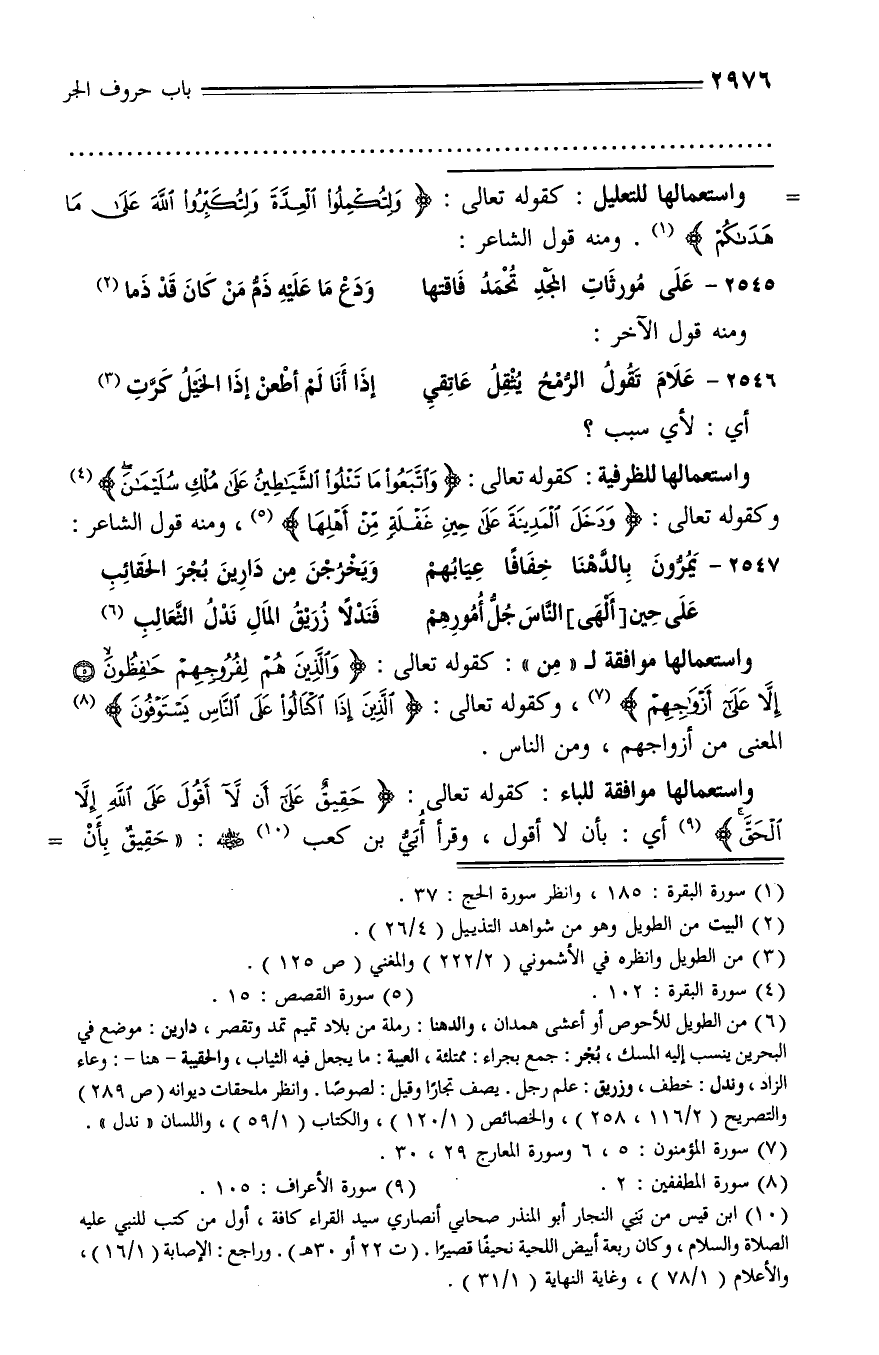 ٢٩٧٦ باب حروف الجر
= واستعمالها للتعليل : كقوله تعالى : ﴿ وَلِتُكْمِلُوا۟ ٱلْعِدَّةَ وَلِتُكَبِّرُوا۟ ٱللَّهَ عَلَىٰ مَا
هَدَىٰكُمْ ﴾ (١) . ومنه قول الشاعر :
٢٥٤٥ - عَلَى مُورثَاتِ المَجْدِ تُحْمَدُ فَاقتها وَدَعْ مَا عَلَيْهِ ذَمُّ مَنْ كَانَ قَدْ ذَما (٢)
ومنه قول الآخر :
٢٥٤٦ - عَلَامَ تَقُولُ الرُّمْحُ يُثْقِلُ عَاتِقِي إذَا أَنَا لَمْ أطْعنْ إذَا الخَيْلُ كَرَّتِ (٣)
أي : لأي سبب ؟
واستعمالها للظرفية : كقوله تعالى : ﴿ وَٱتَّبَعُوا۟ مَا تَتْلُوا۟ ٱلشَّيَـٰطِينُ عَلَىٰ مُلْكِ سُلَيْمَـٰنَۖ ﴾ (٤)
وكقوله تعالى : ﴿ وَدَخَلَ ٱلْمَدِينَةَ عَلَىٰ حِينِ غَفْلَةٍ مِّنْ أَهْلِهَا ﴾ (٥) ، ومنه قول الشاعر :
٢٥٤٧ - يَمُرُّونَ بِالدَّهْنَا خِفَافًا عِيَابُهمْ وَيَخْرُجْنَ مِن دَارِينَ بُجْرَ الحَقائبِ
عَلَى حِين [ أَلْهَى ] النَّاسَ جُلُّ أُمُورِهِمْ فَنَدْلًا زُرَيْقُ المَالِ نَدْلُ الثَّعَالِبِ (٦)
واستعمالها موافقة لـ « مِن » : كقوله تعالى : ﴿ وَٱلَّذِينَ هُمْ لِفُرُوجِهِمْ حَـٰفِظُونَۙ ۝٥
إِلَّا عَلَىٰٓ أَزْوَٰجِهِمْ ﴾ (٧) ، وكقوله تعالى : ﴿ ٱلَّذِينَ إِذَا ٱكْتَالُوا۟ عَلَى ٱلنَّاسِ يَسْتَوْفُونَ ﴾ (٨)
المعنى من أزواجهم ، ومن الناس .
واستعمالها موافقة للباء : كقوله تعالى : ﴿ حَقِيقٌ عَلَىٰٓ أَن لَّآ أَقُولَ عَلَى ٱللَّهِ إِلَّا
ٱلْحَقَّۚ ﴾ (٩) أي : بأن لا أقول ، وقرأ أُبَيُّ بن كعب (١٠) ﷺ : « حَقِيقٌ بِأَنْ =
(١) سورة البقرة : ١٨٥ ، وانظر سورة الحج : ٣٧ .
(٢) البيت من الطويل وهو من شواهد التذييل ( ٢٦/٤ ) .
(٣) من الطويل وانظره في الأشموني ( ٢٢٢/٢ ) والمغني ( ص ١٢٥ ) .
(٤) سورة البقرة : ١٠٢ . (٥) سورة القصص : ١٥ .
(٦) من الطويل للأحوص أو أعشى همدان ، والدهنا : رملة من بلاد تميم تمد وتقصر ، دارين : موضع في
البحرين ينسب إليه المسك ، بُجْر : جمع بجراء : ممتلئة ، العيبة : ما يجعل فيه الثياب ، والحقيبة - هنا - : وعاء
الزاد ، وندل : خطف ، وزريق : علم رجل . يصف تجارًا وقيل : لصوصًا . وانظر ملحقات ديوانه ( ص ٢٨٩ )
والتصريح ( ١١٦/٢ ، ٢٥٨ ) ، والخصائص ( ١٢٠/١ ) ، والكتاب ( ٥٩/١ ) ، واللسان « ندل » .
(٧) سورة المؤمنون : ٥ ، ٦ وسورة المعارج ٢٩ ، ٣٠ .
(٨) سورة المطففين : ٢ . (٩) سورة الأعراف : ١٠٥ .
(١٠) ابن قيس من بَنِي النجار أبو المنذر صحابي أنصاري سيد القراء كافة ، أول من كتب للنبي عليه
الصلاة والسلام ، وكان ربعة أبيض اللحية نحيفًا قصيرًا . ( ت ٢٢ أو ٣٠هـ ) . وراجع : الإصابة ( ١٦/١ ) ،
والأعلام ( ٧٨/١ ) ، وغاية النهاية ( ٣١/١ ) .